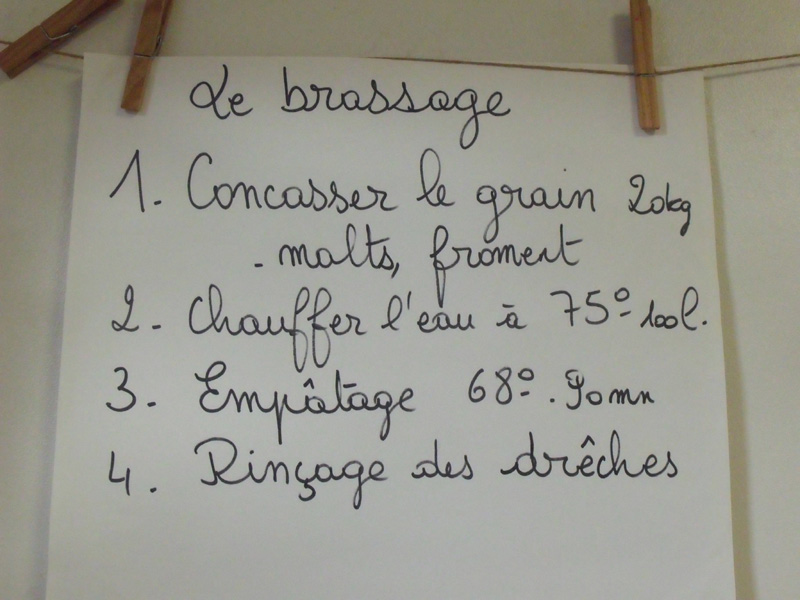 Le brassage
1. Concasser le grain 20kg
- malts, froment
2. Chauffer l'eau à 75° 100l.
3. Empâtage 68°. 90mn
4. Rinçage des drêches